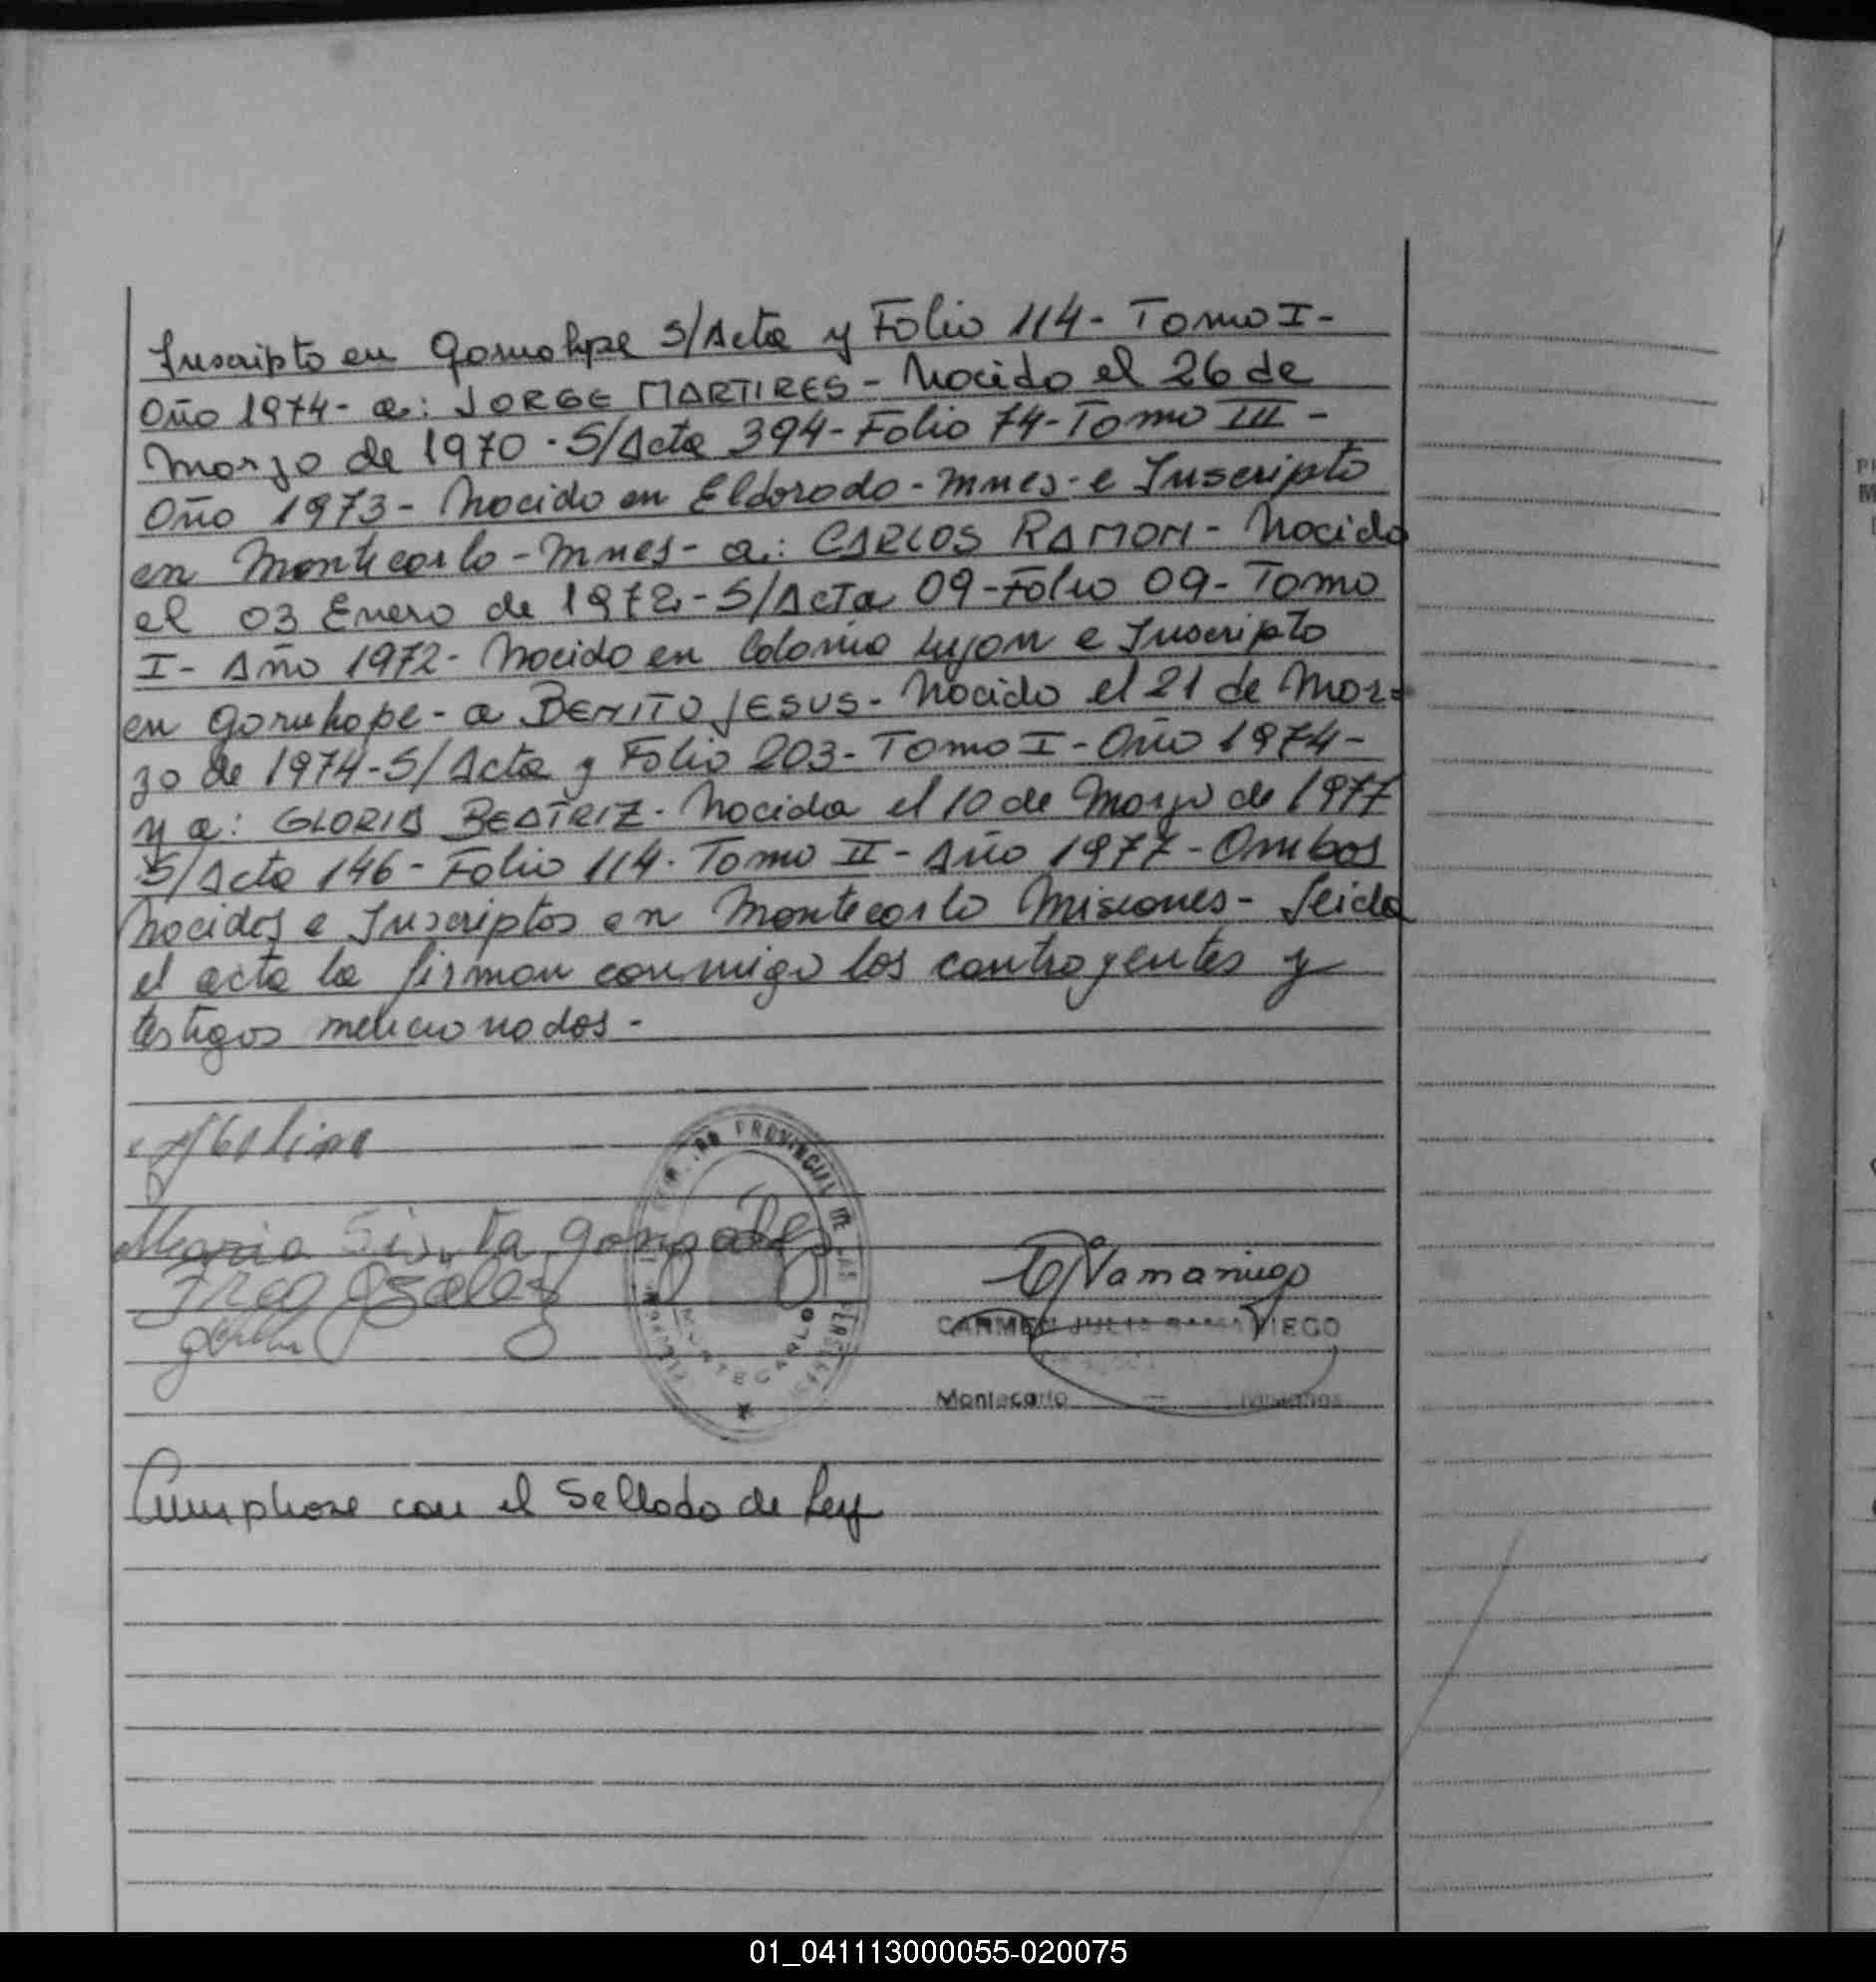 Inscripto en Garuhape S/Acta y Folio 114- Tomo I-
Año 1974- a: JORGE MARTIRES- Nacido el 26 de
Marzo de 1970. S/Acta 394- Folio 74- Tomo III-
Año 1973- Nacido en Eldorado- Mnes- e Inscripto
en Montecarlo- Mnes- a: CARLOS RAMON- Nacido
el 03 Enero de 1972.- S/Acta 09- Folio 09- Tomo
I- Año 1972- Nacido en Colonia Lujan e Inscripto
en Garuhape- a BENITO JESUS- Nacido el 21 de Mar=
zo de 1974- S/Acta y Folio 203- Tomo I- Año 1974-
y a: GLORIA BEATRIZ- Nacida el 10 de Marzo de 1977
S/Acta 146- Folio 114. Tomo II- Año 1977- Ambos
Nacidos e Inscriptos en Montecarlo Misiones- Leida
el acta la firman conmigo los contrayentes y
testigos mencionados-
PROVINCIAL DE LAS PERSONAS
MONTECARLO
Maria Sixta Gonzalez
CARMEN JULIA SAMANIEGO
Montecarlo - Misiones
Cumplase con el Sellado de Ley
01_041113000055-020075